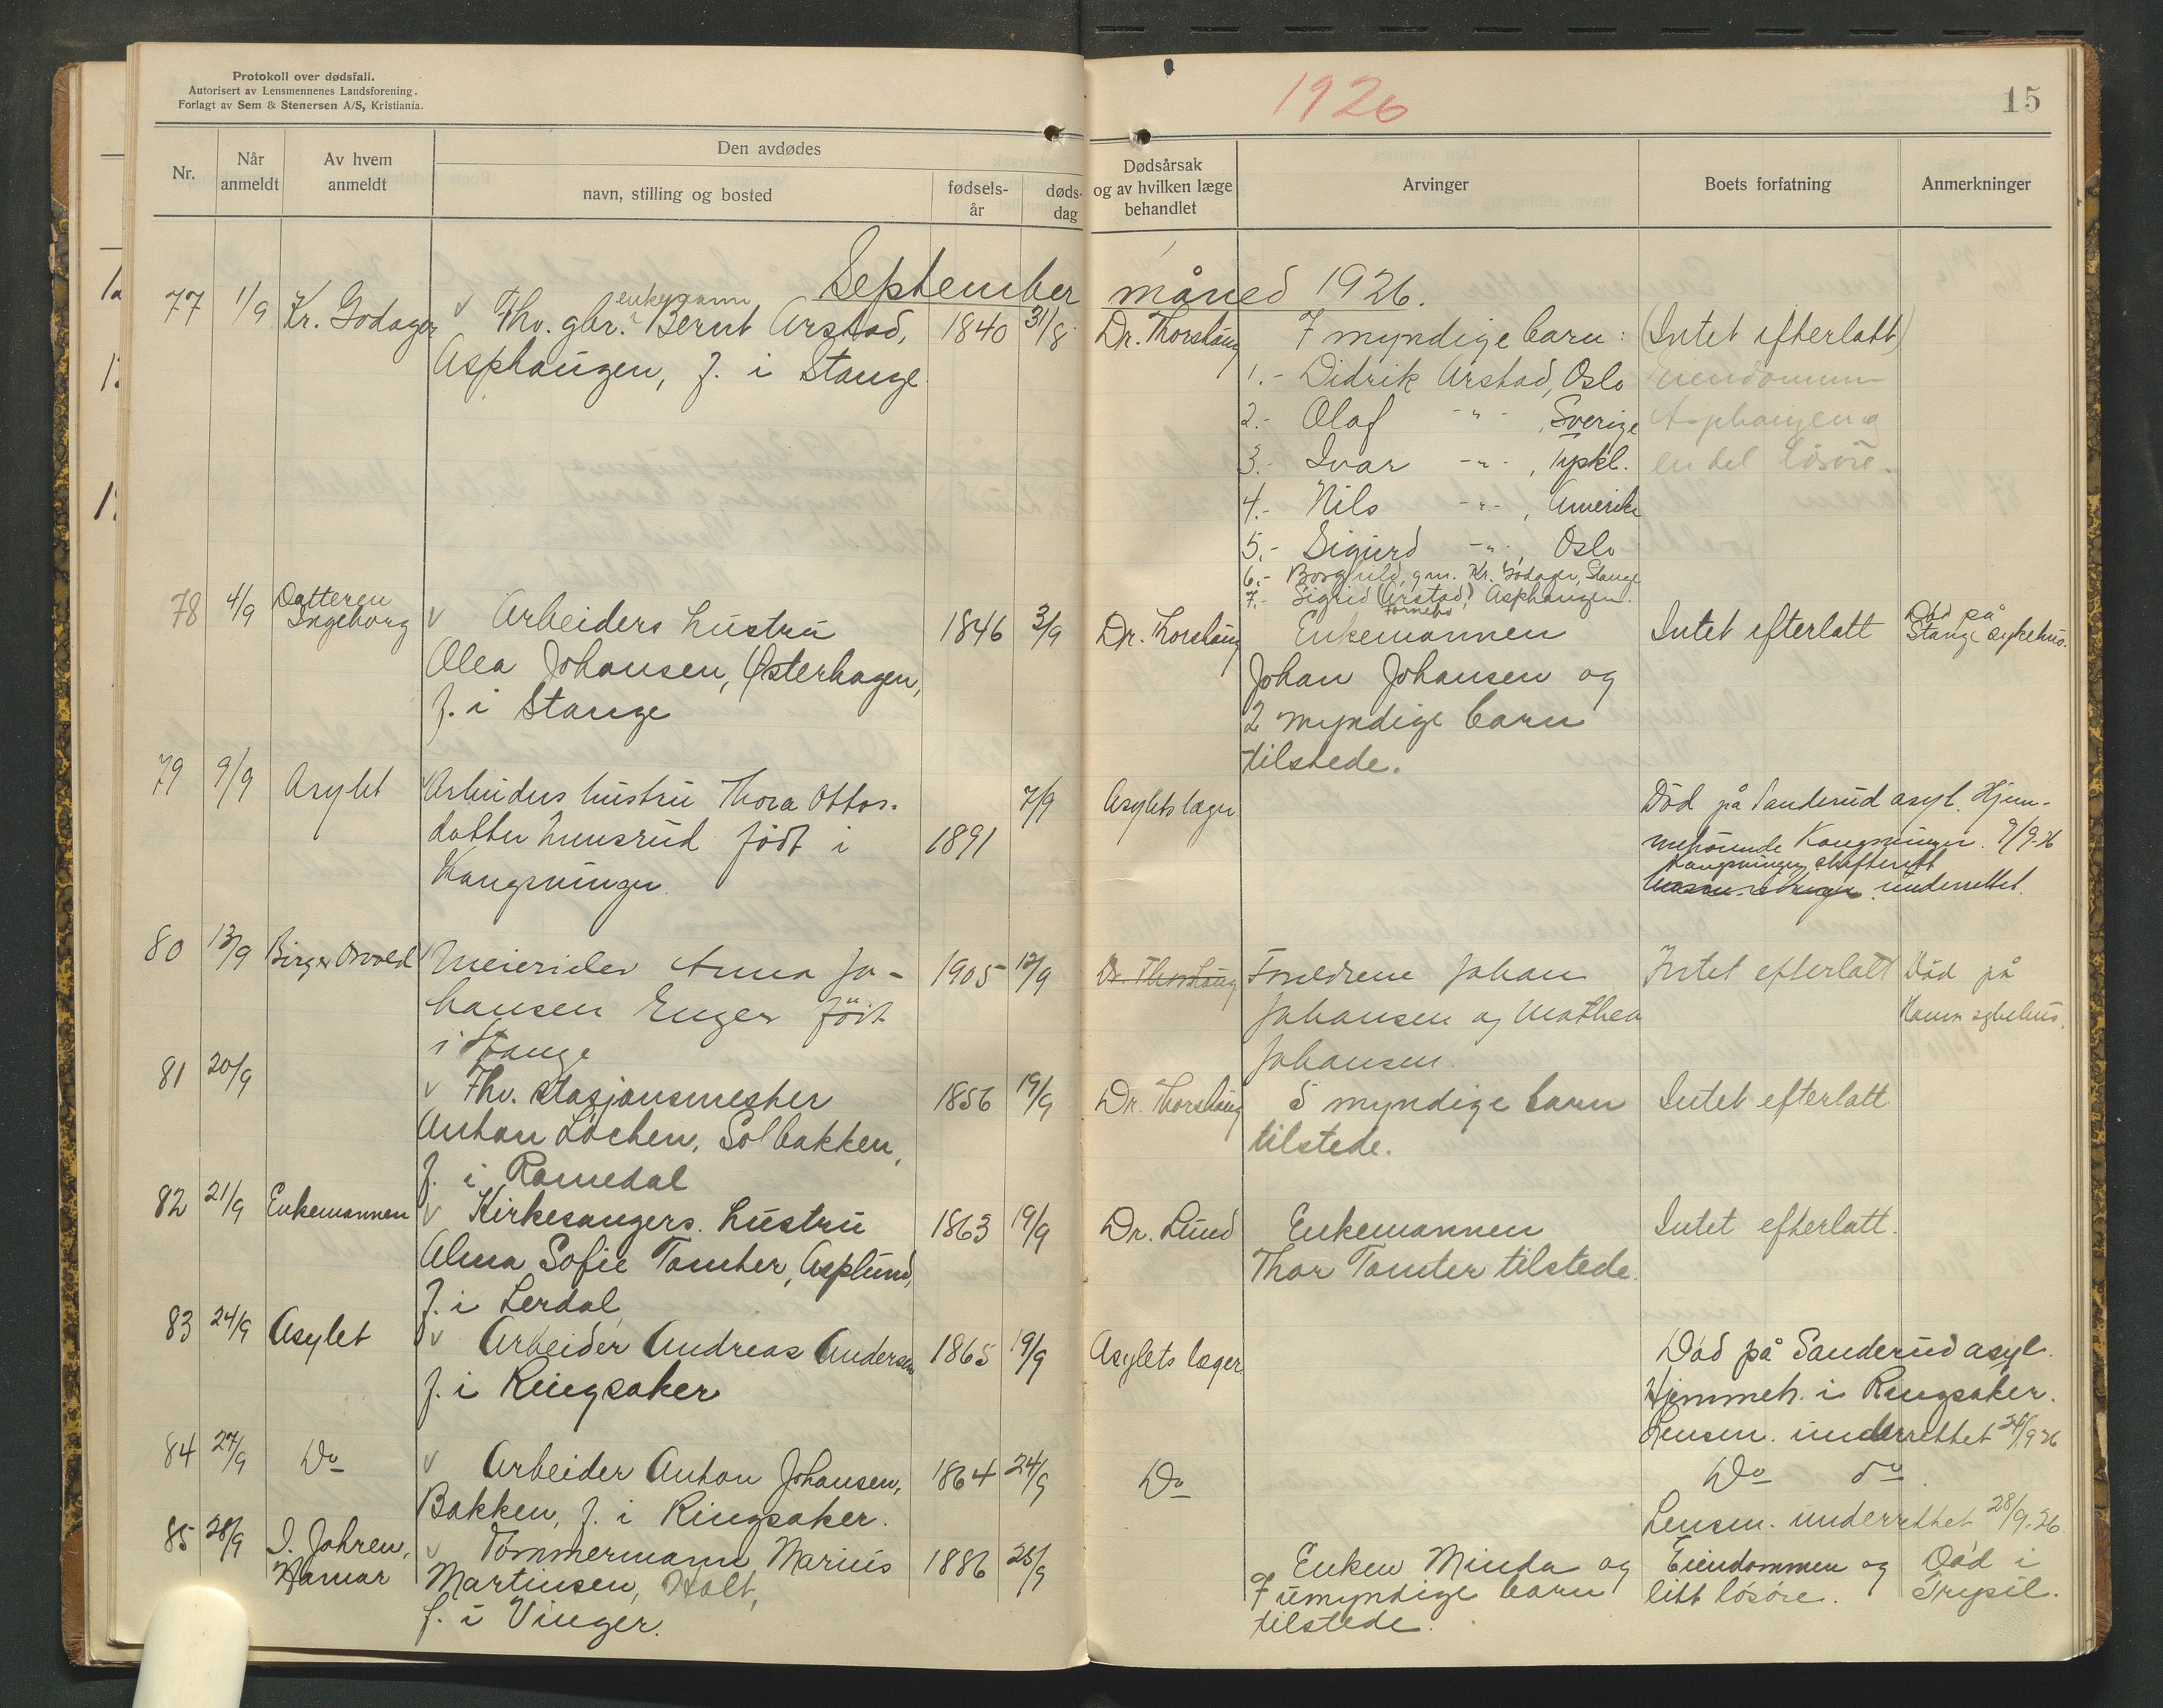 Protokoll over dødsfall.
Autorisert av Lensmennenes Landsforening.
Forlagt av Sem & Stenersen A/S, Kristiania.
1926
15
Nr.
Når anmeldt
Av hvem anmeldt
Den avdødes
navn, stilling og bosted
fødsels-år
døds-dag
Dødsårsak og av hvilken læge behandlet
Arvinger
Boets forfatning
Anmerkninger
September måned 1926.
77 1/9 Kr. Godager v Fhv. gbr. enkemann Bernt Arstad, 1840 31/8 Dr. Thorshaug 7 myndige barn: (Intet efterlatt)
Asphaugen, f. i Stange 1.- Didrik Arstad, Oslo Eiendommen
2.- Olaf -"- , Sverige Asphaugen og
3.- Ivar -"- , Tyskl. en del løsøre.
4.- Nils -"- , Amerika
5.- Sigurd -"-, Oslo
6.- Borghild, gm. Kr. Godager, Stange
7.- Sigrid (Arstad) Asphaugen.
78 4/9 Datteren Ingeborg v Arbeiders hustru 1846 3/9 Dr. Thorshaug Enkemannen Intet efterlatt Død på Stange sykehus.
Olea Johansen, Østerhagen, Johan Johansen og
f. i Stange 2 myndige barn
tilstede.
79 9/9 Asylet v Arbeiders hustru Thora Ottos- 7/9 Asylets læger Død på Sanderud asyl. Hjem-
datter født i 1891 mehørende Kongsvinger. 9/9-26
Kongsvinger. Kongsvinger skifterett
underrettet.
80 13/9 Birger Osvold v Meierielev Anna Jo- 1905 12/9 Dr. Thorshaug Foreldrene Johan Intet efterlatt Død på
hansen Enger født Johansen og Mathea Hamar sykehus.
i Stange Johansen.
81 20/9 v Fhv. stasjonsmester 1856 19/9 Dr. Thorshaug 5 myndige barn Intet efterlatt
Anton Løchen, Solbakken, tilstede.
f. i Romedal
82 21/9 Enkemannen v Kirkesangers hustru 1863 19/9 Dr. Lund Enkemannen Intet efterlatt.
Alma Sofie Tomter, Asplund, Thor Tomter tilstede.
f. i Lerdal
83 24/9 Asylet v Arbeider Andreas Andersen 1865 19/9 Asylets læger Død på Sanderud asyl.
f. i Ringsaker Hjemmeh. i Ringsaker.
Lensm. underrettet 24/9 26
84 27/9 Do v Arbeider Anton Johansen, 1864 24/9 Do Do do.
Bakken, f. i Ringsaker. Lensm. underrettet 28/9.26
85 28/9 I. Johren, Hamar v Tømmermann Marius 1886 25/9 Enken Minda og Eiendommen og Død i
Martinsen, Holt, 7 umyndige barn litt løsøre. Trysil.
f. i Vinger. tilstede.